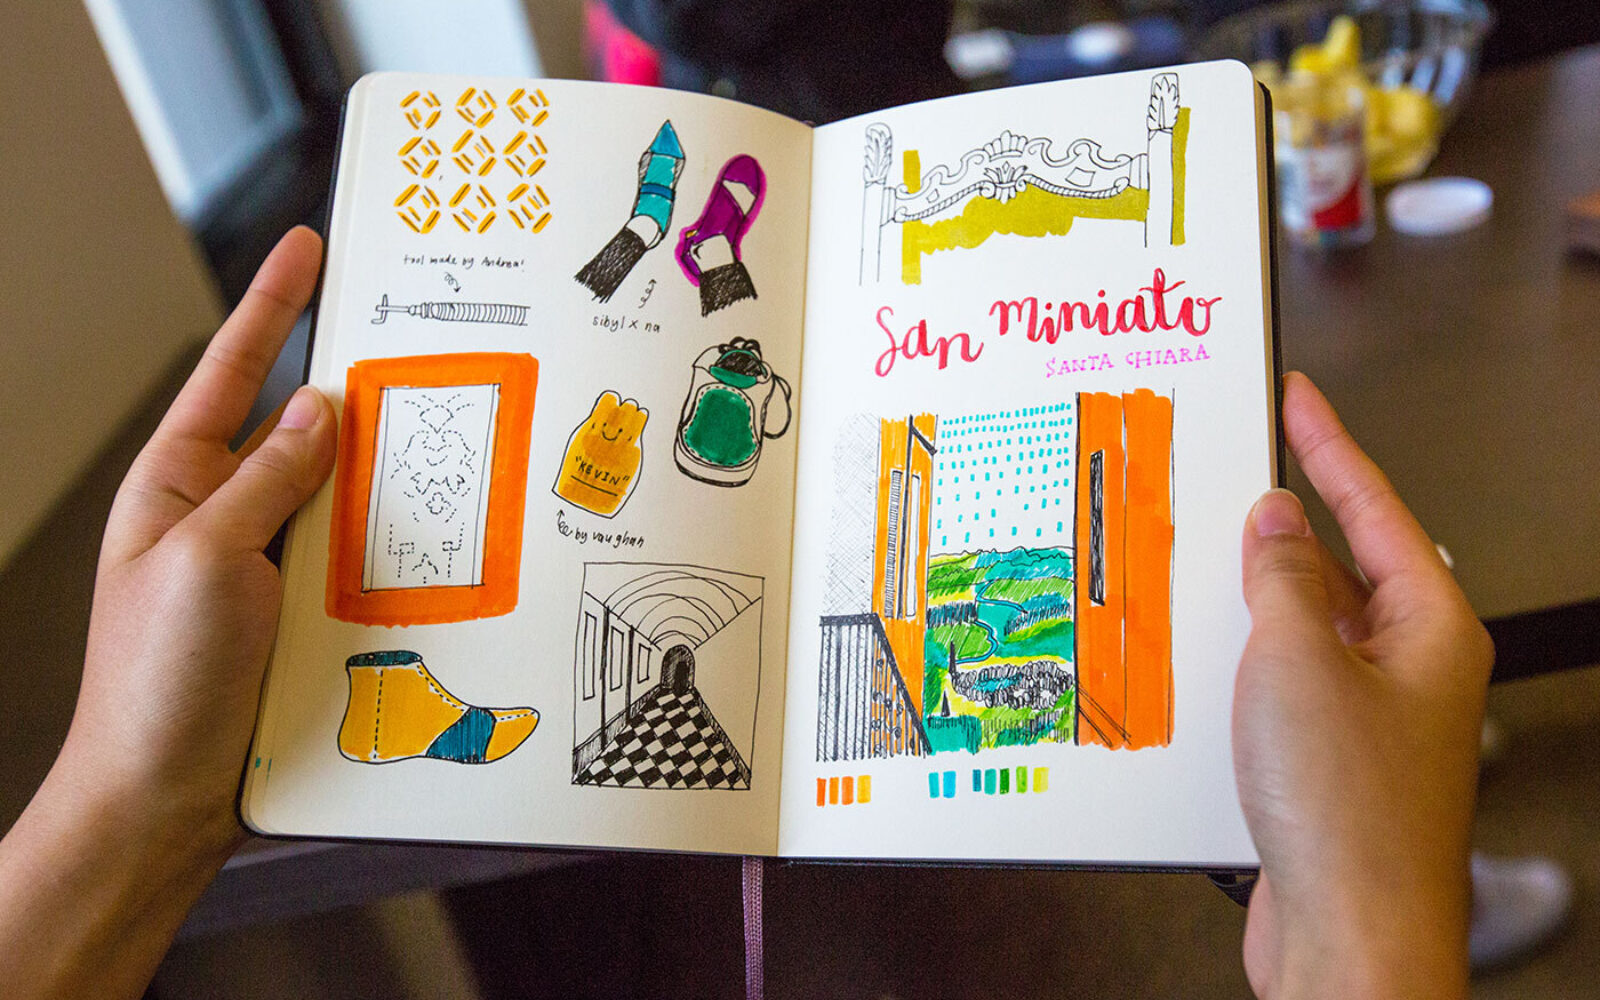 tool made by Andrea!
sibyl x na
"KEVIN"
by vaughan
San Miniato
SANTA CHIARA